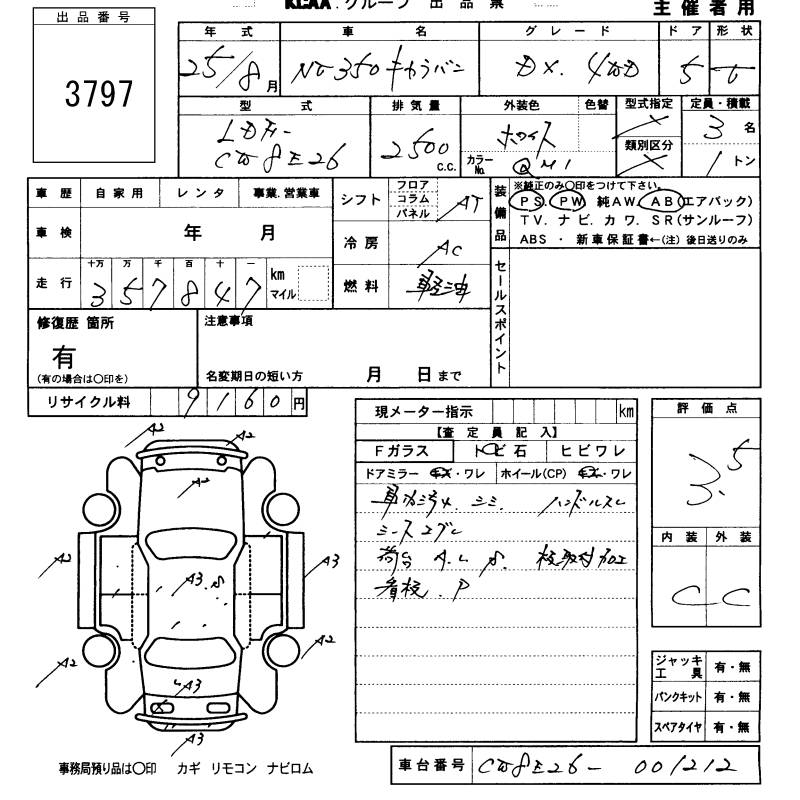 KCAA グループ 出品票
主催者用
出品番号
3797
年式 車名 グレード ドア 形状
25/8月 NV350キャラバン DX. 4WD 5 V
型式 排気量 外装色 色替 型式指定 定員・積載
LDF-
CW8E26 2500 C.C. ホワイト カラーNo. QM1 類別区分 3名
1トン
車歴 自家用 レンタ 事業.営業車
シフト フロア コラム パネル AT
装備品 ※純正のみ〇印をつけて下さい。
PS. PW 純AW. AB(エアバック)
TV. ナビ. カワ. SR(サンルーフ)
ABS ・ 新車保証書←(注) 後日送りのみ
車検 年 月
冷房 AC
走行 十万 万 千 百 十 一
357847 km マイル
燃料 軽油
セールスポイント
修復歴 箇所
有
(有の場合は〇印を)
注意事項
名変期日の短い方 月 日まで
リサイクル料 9160円
現メーター指示 km
【査定員記入】
Fガラス トビ石 ヒビワレ
ドアミラー キズ・ワレ ホイール(CP) キズ・ワレ
車内キズ. シミ. ハンドルスレ
シートコゲ
荷台 A. L S. 板取付加工
看板. P
評価点
3.5
内装 外装
C C
ジャッキ工具 有・無
パンクキット 有・無
スペアタイヤ 有・無
A2
A2
A2
A2
A3.S
A3
A2
A2
A3
A3
事務局預り品は〇印 カギ リモコン ナビロム
車台番号 CW8E26-001212